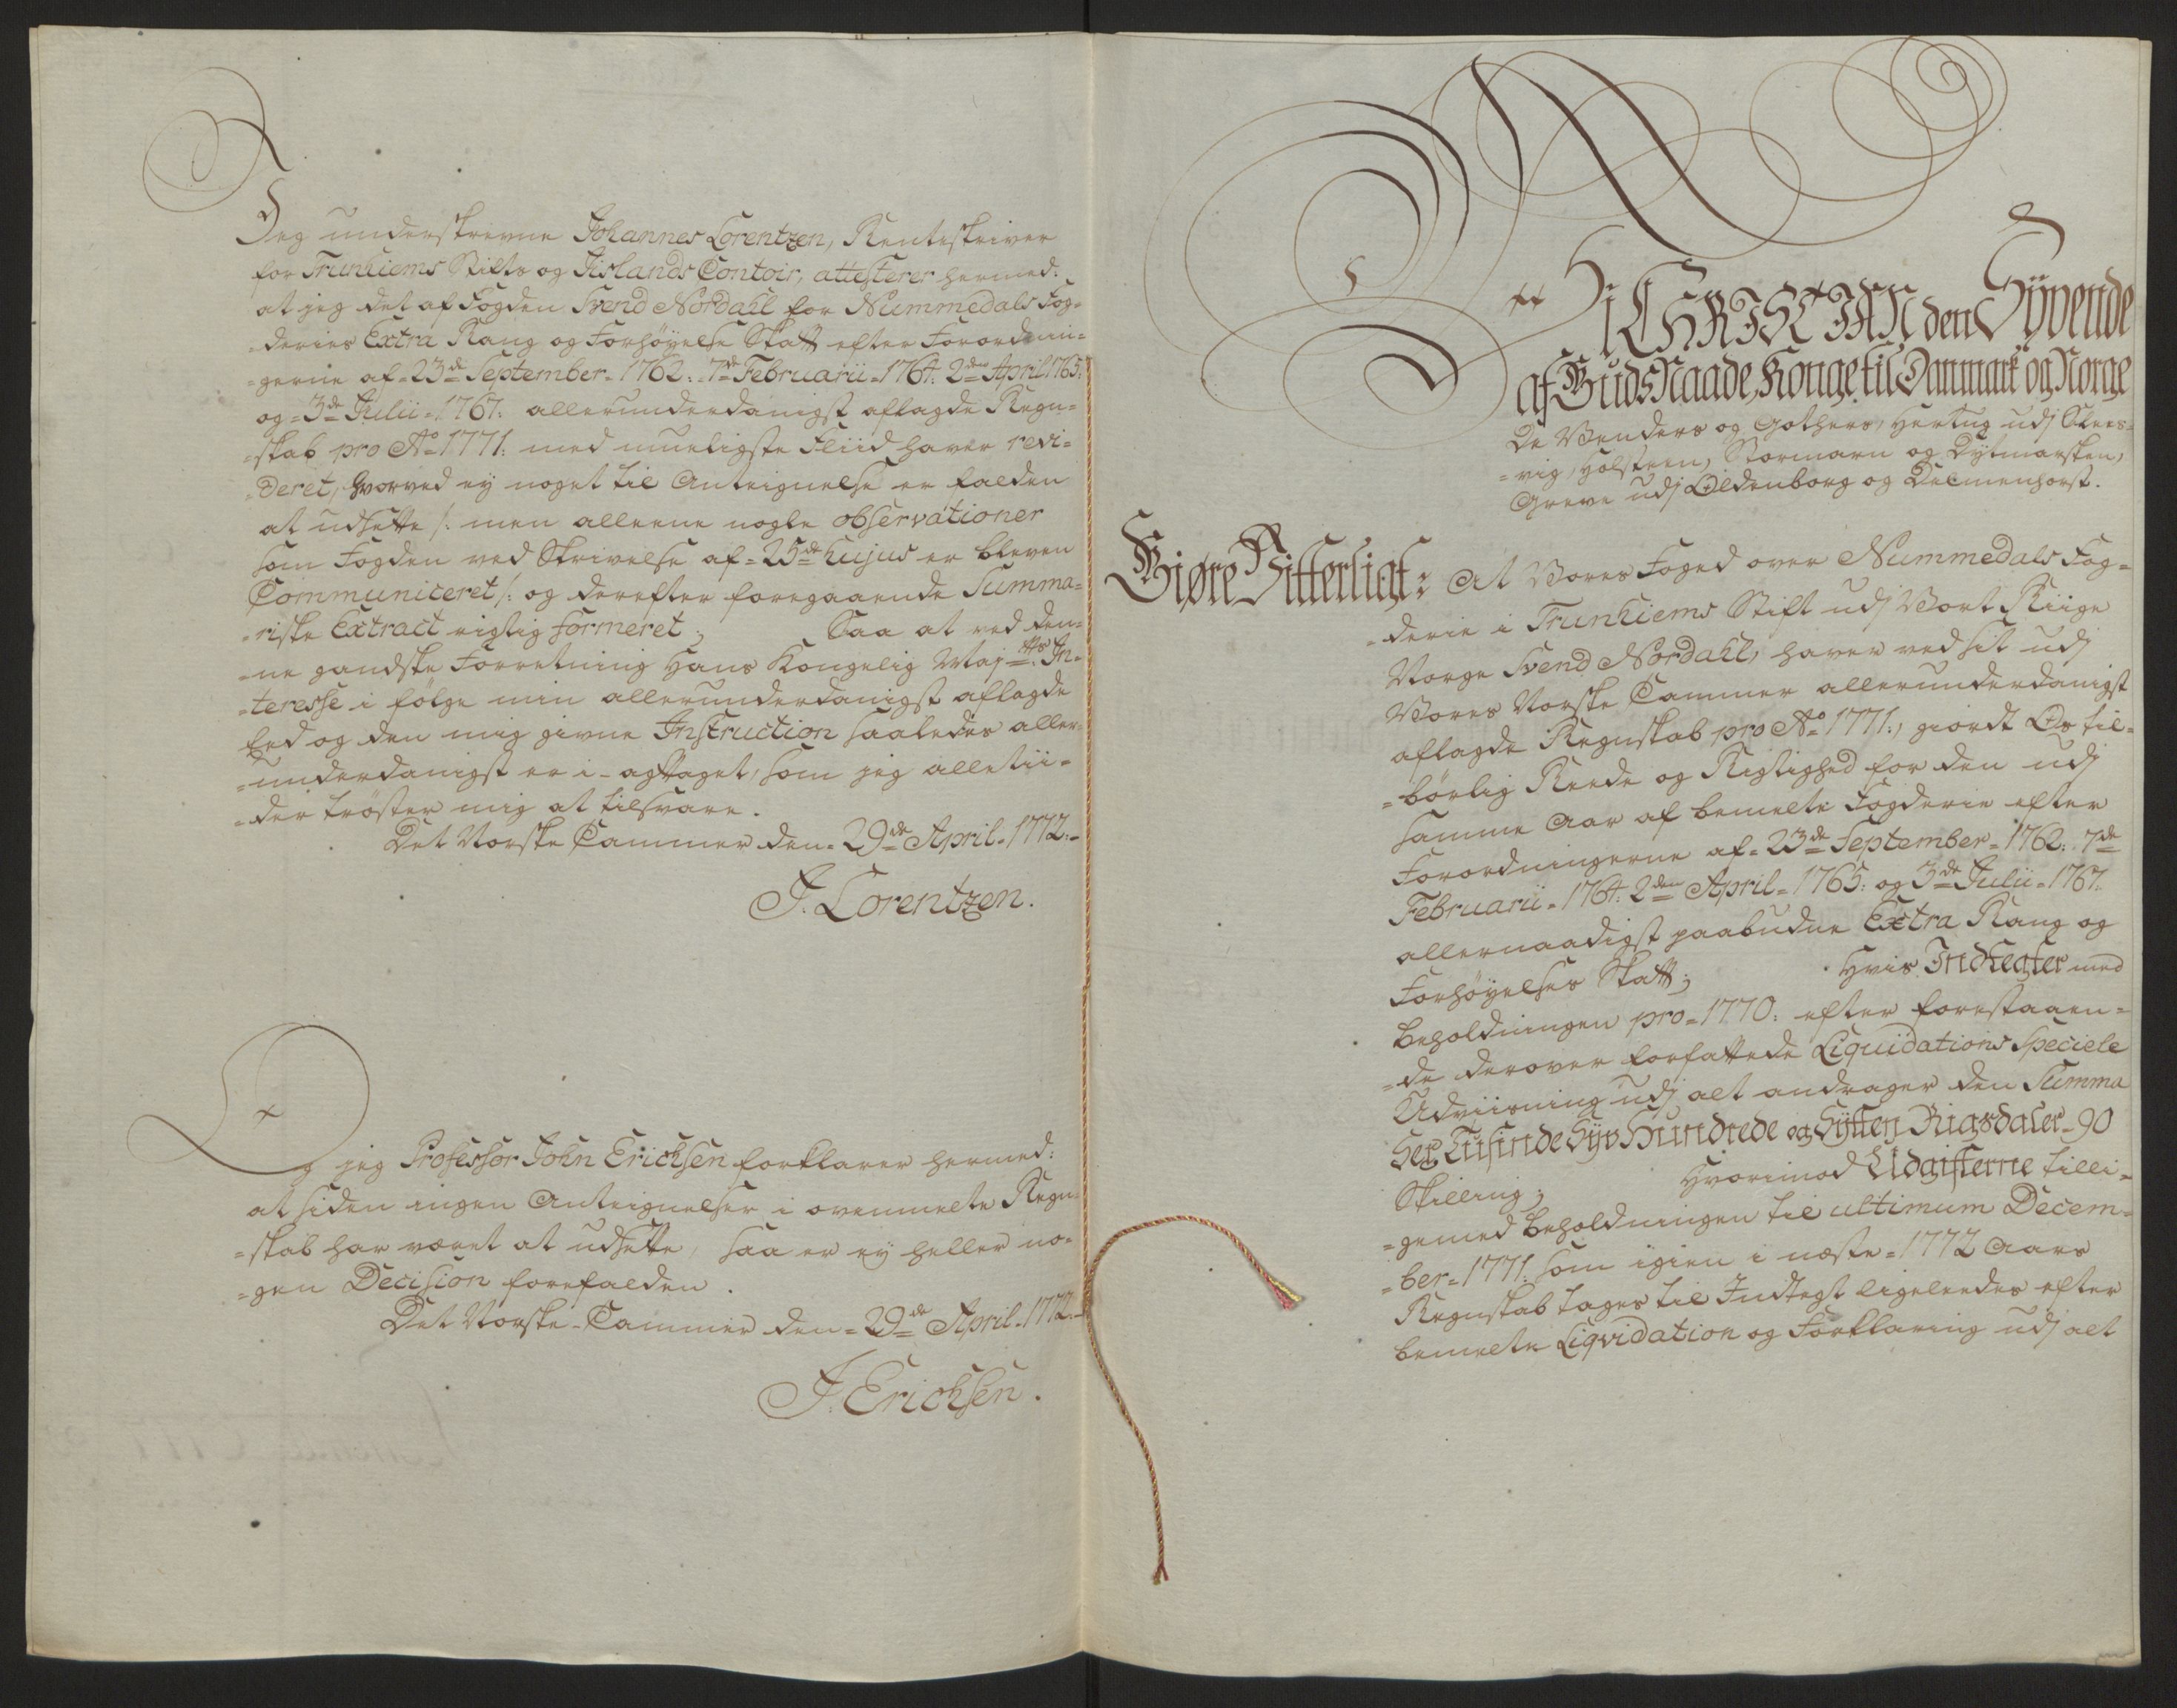 Jeg underskrevne Johannes Lorentzen, Renteskriver
for Trunhiems Stifts og Jislands Contoir, attesterer hermed:
at jeg det af Fogden Svend Nordahl for Nummedals Fog-
-deries Extra Rang og Forhøyelse Skatt efter Forordnin-
-gerne af 23de September 1762. 7de Februarii 1764. 2den April 1765.
og 3de Julii 1767. allerunderdanigst aflagde Regn-
-skab pro Ao 1771. med mueligste Fliid haver revi-
-deret, hvorved ey noget til Anteignelse er falden
at udsette /: men alleene nogle observationer
som Fogden ved Skrivelse af 25de hujus er bleven
Communiceret :/ og derefter foregaaende Summa-
-riske Extract rigtig formeret; Saa at ved den-
-ne gandske Forretning Hans Kongelig Majtts In-
-teresse i følge min allerunderdanigst aflagde
Eed og den mig givne Instruction saaledes aller-
-underdanigst er i-agttaget, som jeg alletii-
-der trøster mig at tilsvare.
Det Norske Cammer den 29de April 1772.
J. Lorentzen.
Og jeg Professor John Erichsen forklarer hermed:
at siden ingen Anteignelser i ovenmelte Regn-
-skab har været at udsette, saa er ey heller no-
-gen Decision forefalden.
Det Norske Cammer den 29de April 1772.
J. Erichsen.
Vi CHRISTIAN den Syvende
af Guds Naade, Konge til Danmark og Norge
De Venders og Gothers, Hertug udj Slees-
-vig, Holsteen, Stormarn og Dytmarsken,
Greve udj Oldenborg og Delmenhorst.
Giøre Vitterligt: At Vores Foged over Nummedals Fog-
-derie i Trunhiems Stift udj Vort Riige
Norge Svend Nordahl, haver ved sit udj
Vores Norske Cammer allerunderdanigst
aflagde Regnskab pro Ao 1771., giordt Os til-
-børlig Reede og Rigtighed for den udj
samme Aar af bemelte Fogderie efter
Forordningerne af 23de September 1762. 7de
Februarii 1764. 2den April 1765. og 3de Julii 1767.
allernaadigst paabudne Extra Rang og
Forhøyelses Skatt; Hvis Indtegter med
Beholdningen pro 1770. efter forestaaen-
-de derover forfattede Liquidations Speciele
Udviisning udj alt andrager den Summa
Sex Tusinde Syv Hundrede og Sytten Rigsdaler 90
Skilling; Hvorimod Udgifterne tilli-
-gemed Beholdningen til ultimum Decem-
-ber 1771. som igien i næste 1772 Aars
Regnskab tages til Indtegt ligeleedes efter
bemelte Liqvidation og Forklaring udj alt